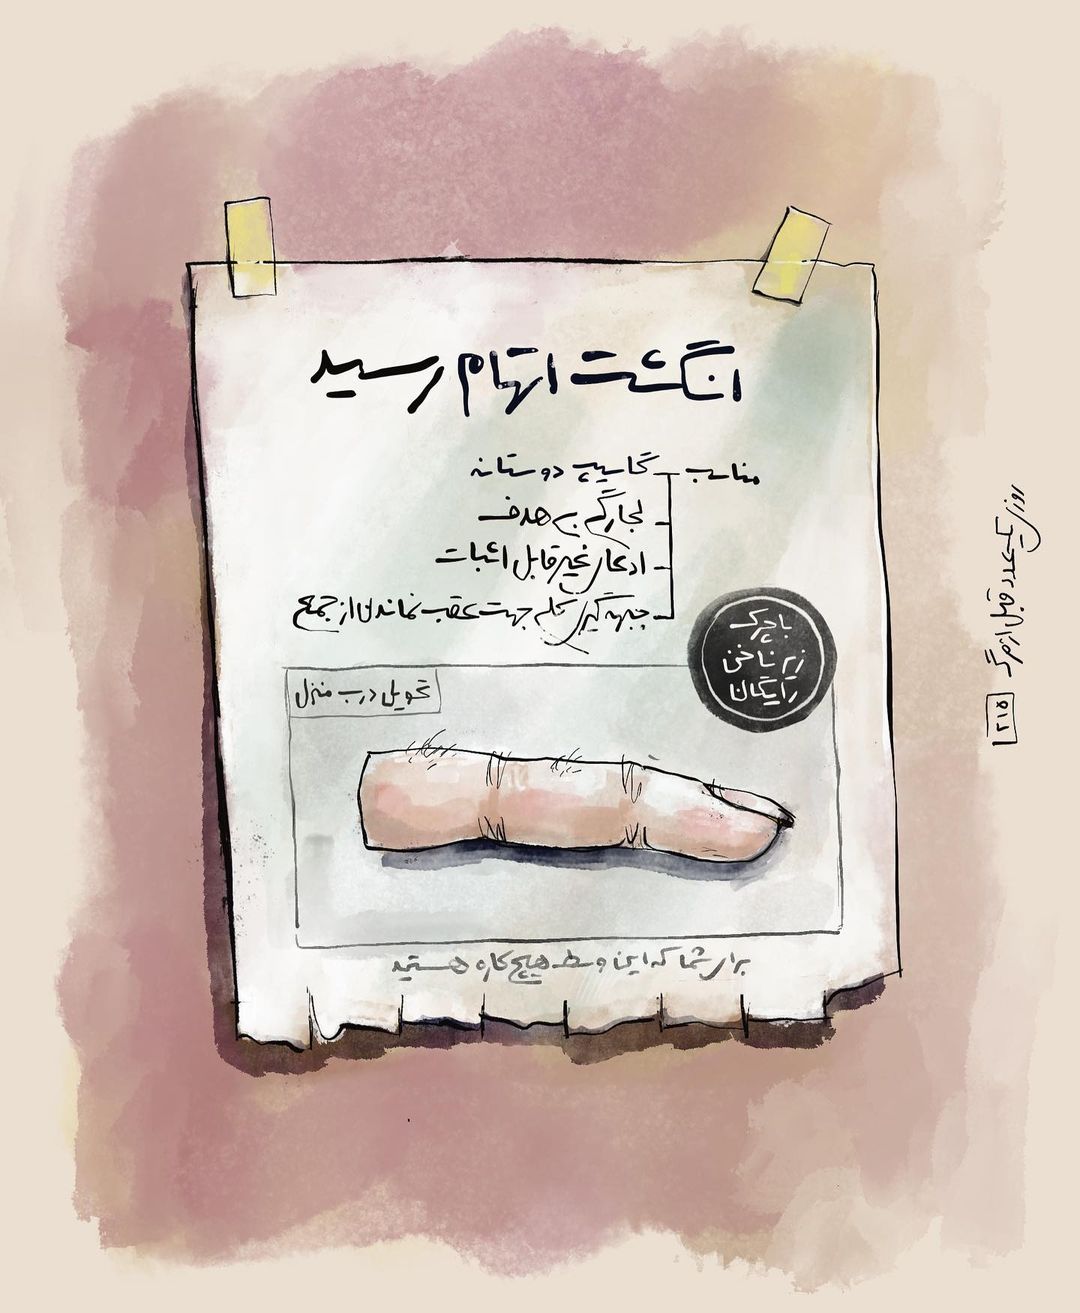 انگشت اتهام رسید
مناسب گاسیپ دوستانه
لجارگی بی هدف
ادعای غیر قابل اثبات
جبهه گیری کلم جهت عقب نماندن از جمع
با چرک
زیر ناخن
رایگان
تحویل درب منزل
برای شما که این وسط هیچ کاره هستید
روزی یک عدد قبل از مرگ
۲۱۵